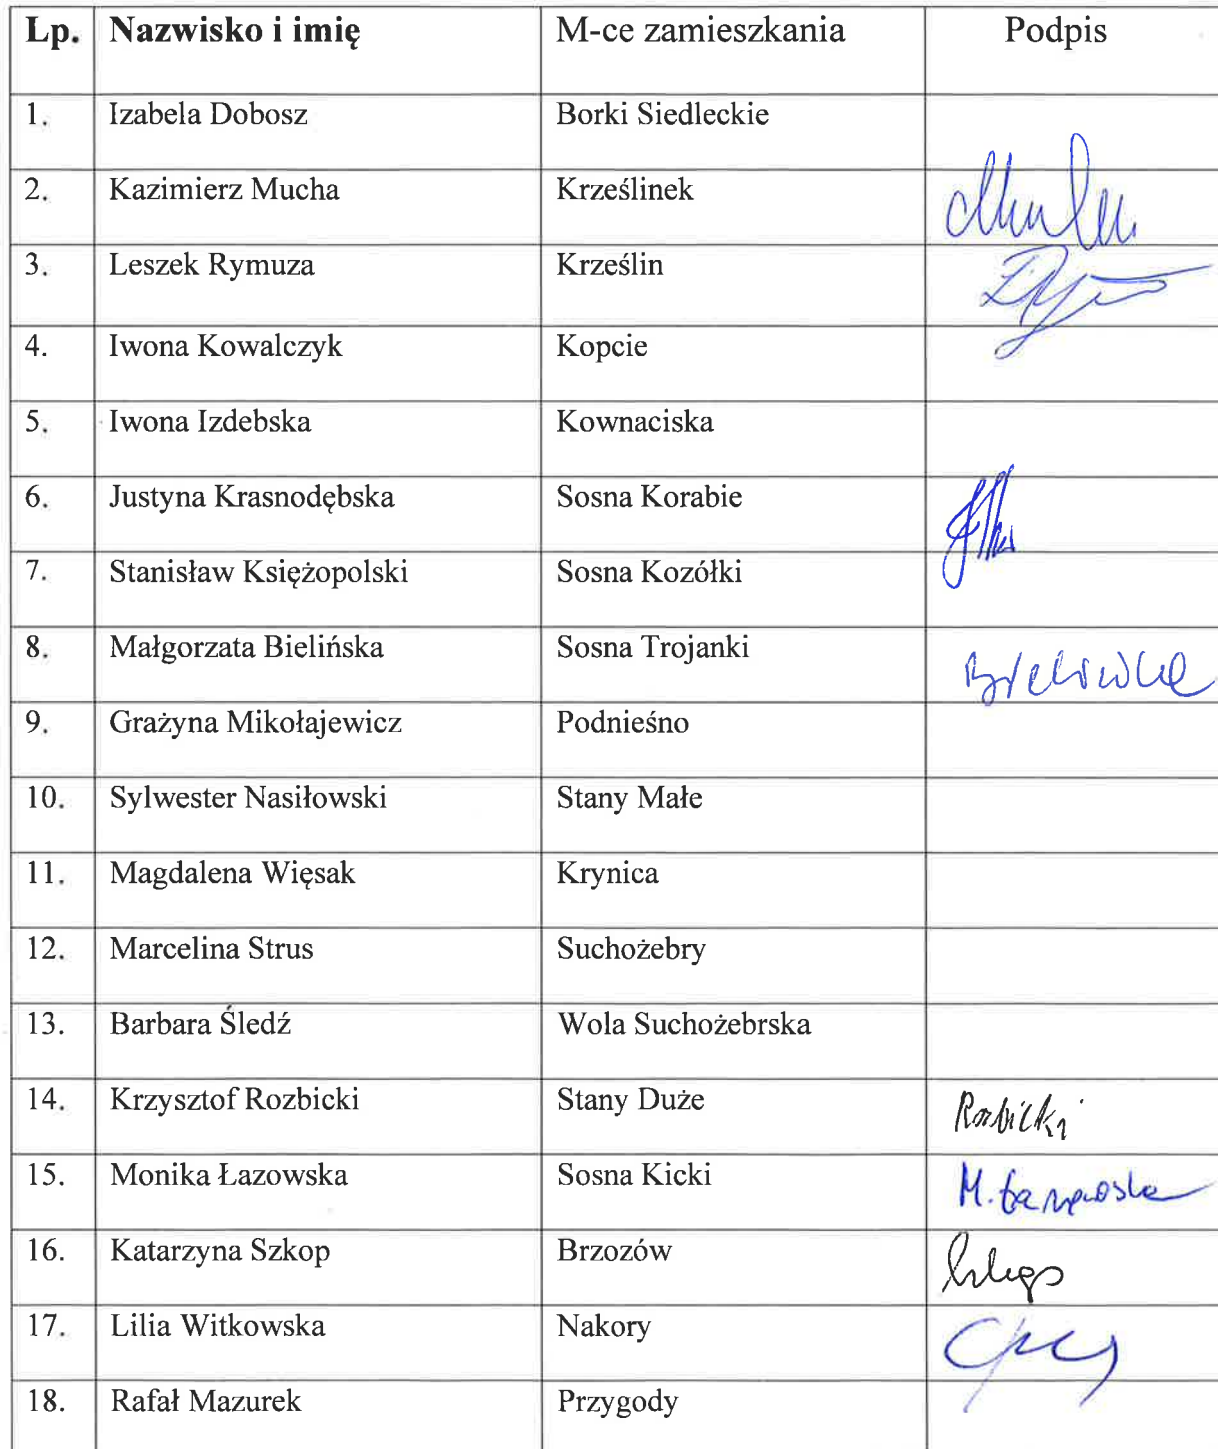 Lp. Nazwisko i imię M-ce zamieszkania Podpis
1. Izabela Dobosz Borki Siedleckie
2. Kazimierz Mucha Krześlinek
3. Leszek Rymuza Krześlin
4. Iwona Kowalczyk Kopcie
5. Iwona Izdebska Kownaciska
6. Justyna Krasnodębska Sosna Korabie
7. Stanisław Księżopolski Sosna Kozółki
8. Małgorzata Bielińska Sosna Trojanki
9. Grażyna Mikołajewicz Podnieśno
10. Sylwester Nasiłowski Stany Małe
11. Magdalena Więsak Krynica
12. Marcelina Strus Suchożebry
13. Barbara Śledź Wola Suchożebrska
14. Krzysztof Rozbicki Stany Duże Rozbicki
15. Monika Łazowska Sosna Kicki M. Łazowska
16. Katarzyna Szkop Brzozów
17. Lilia Witkowska Nakory
18. Rafał Mazurek Przygody